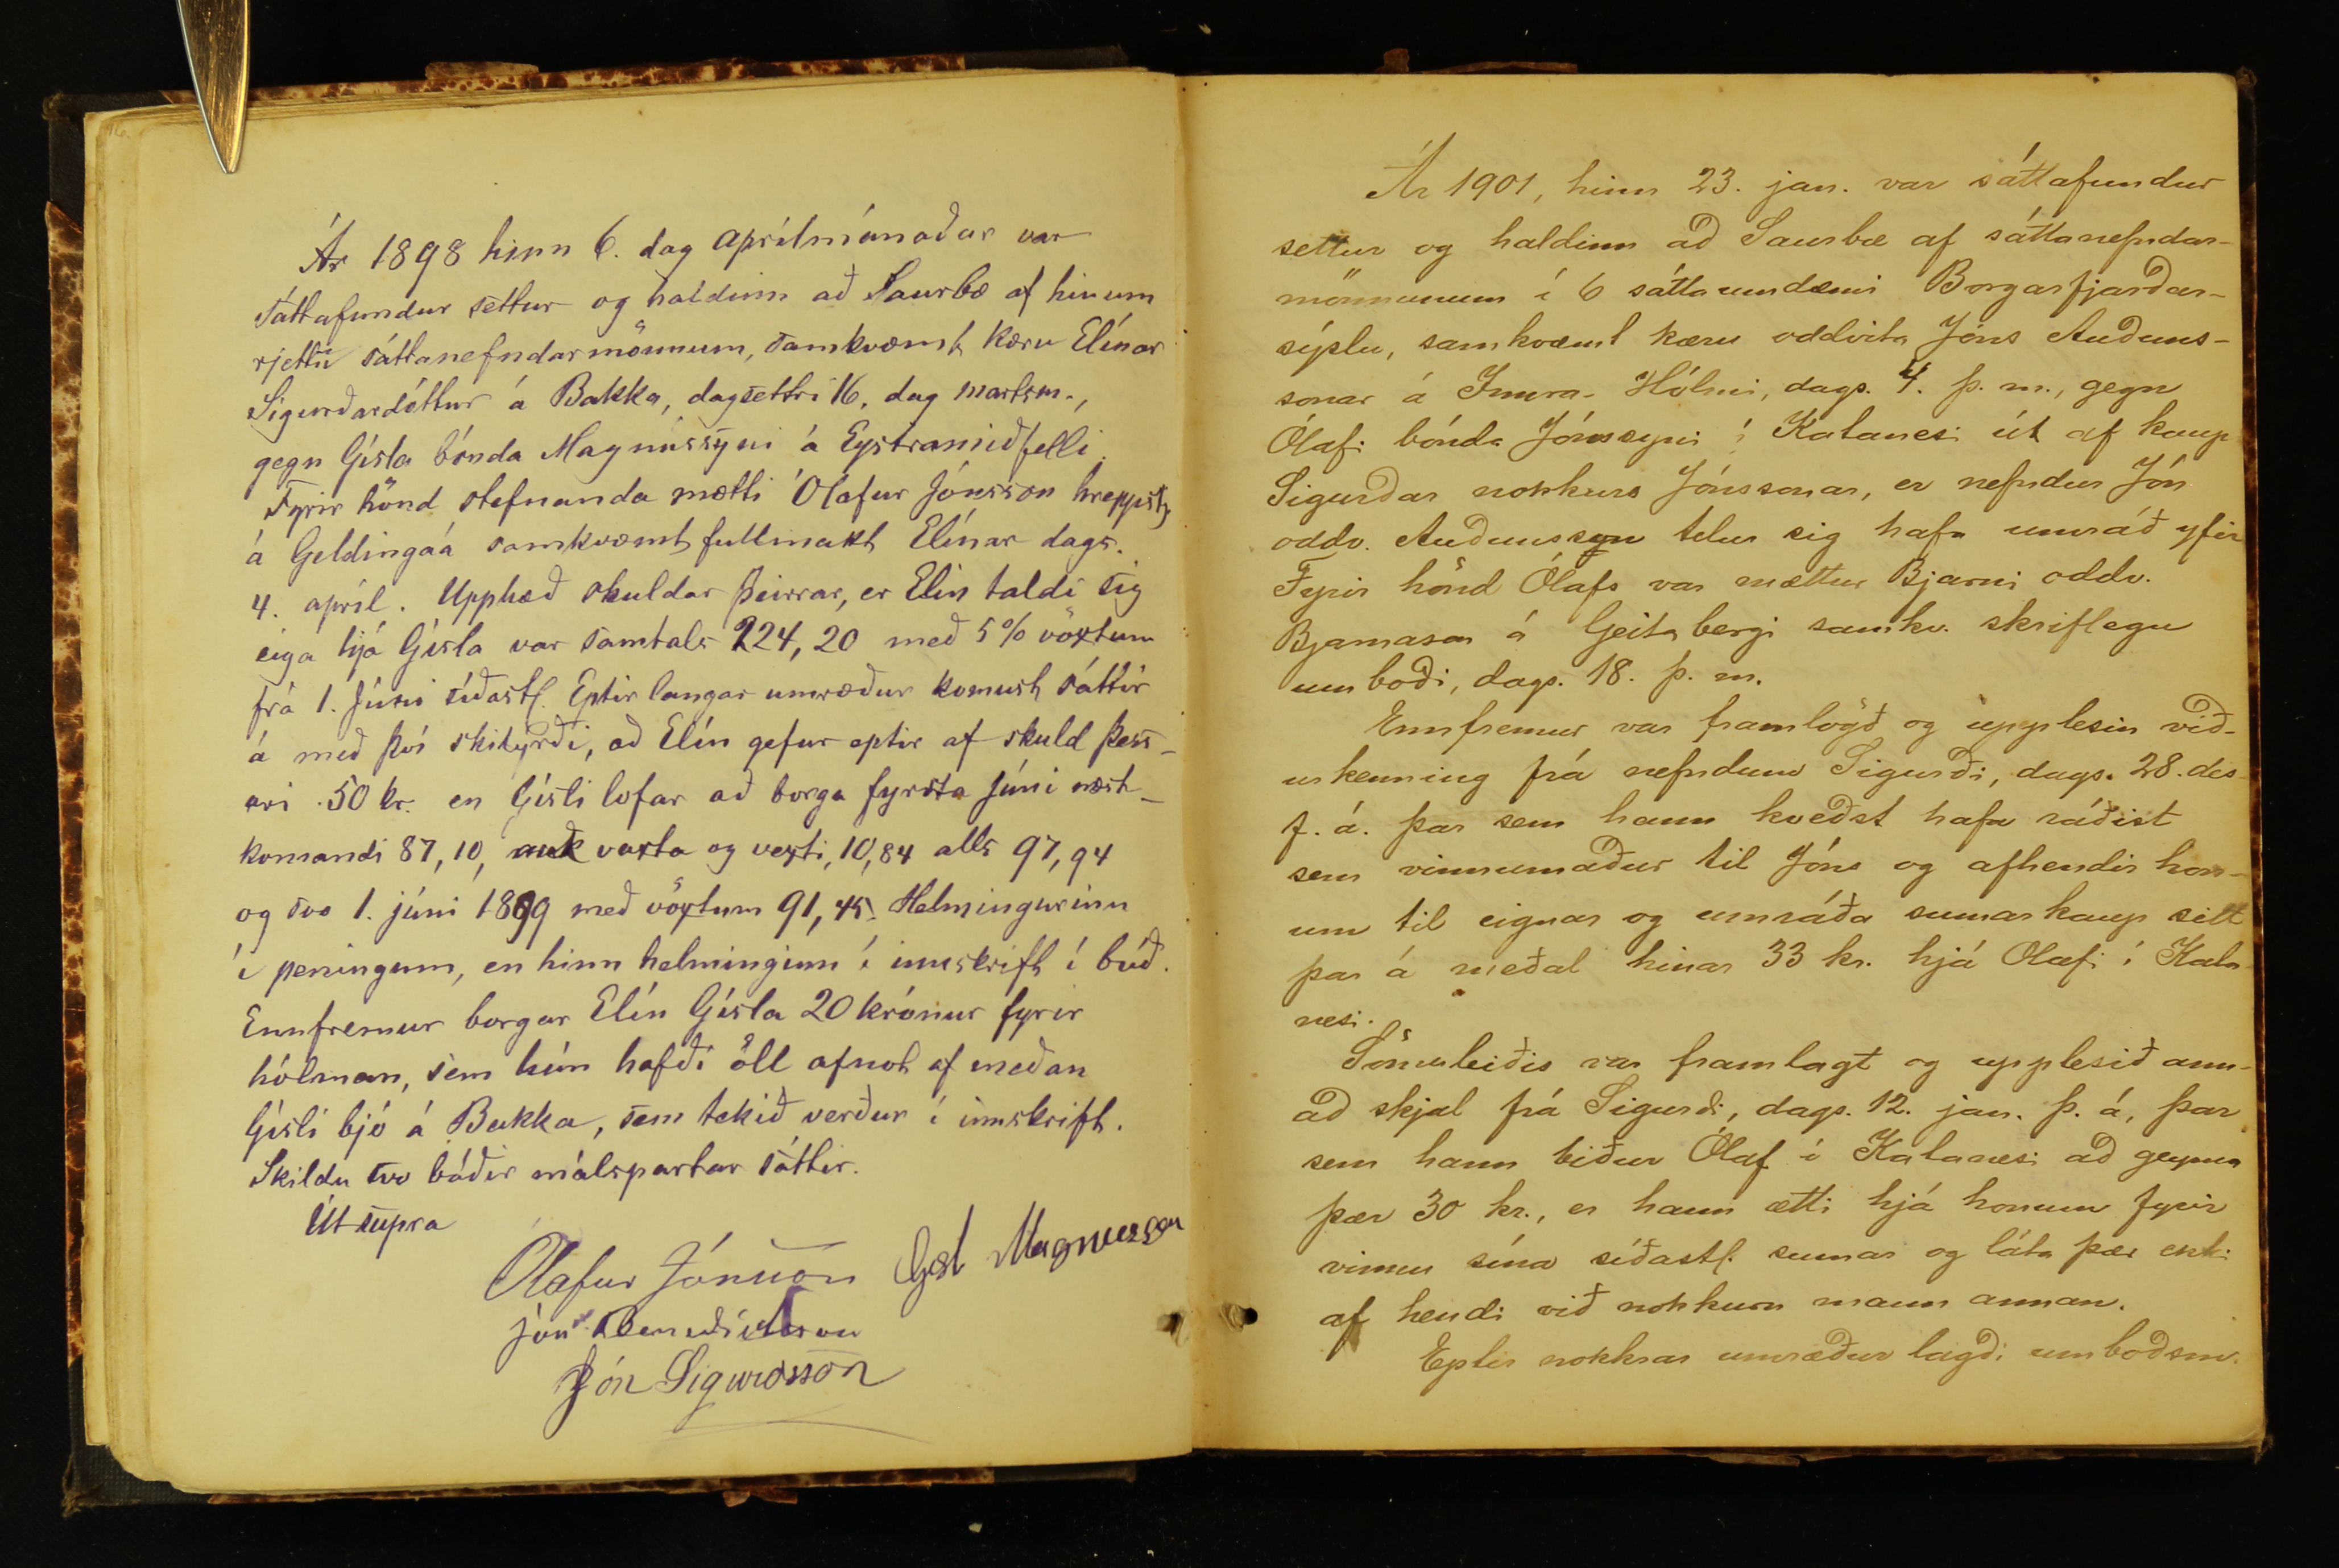 Ár 1898 hinn 6. dag aprílmánaðar var
sáttafundur settur og haldinn að Saurbæ af hinum
rjettu sáttanefndarmönnum, samkvæmt kæru Elínar
Sigurðardóttur á Bakka, dagsettri 16. dag martsm.,
gegn Gísla bónda Magnússyni á Eystramiðfelli.
Fyrir hönd stefnanda mætti Ólafur Jónsson hreppstj.
á Geldingaá samkvæmt fullmakt Elínar dags.
4. apríl. Upphæð skuldar þeirrar, er Elín taldi sig
eiga hjá Gísla var samtals 224,20 með 5% vöxtum
frá 1. Júní síðastl. Eptir langar umræður komust sáttir
á með því skilyrði, að Elín gefur eptir af skuld þess-
ari 50 kr. en Gísli lofar að borga fyrsta Júní næst-
komandi 87,10, auk vaxta og vexti, 10,84 alls 97,94
og svo 1. júní 1899 með vöxtum 91,45. Helmingurinn
í peningum, en hinn helminginn í innskrift í búð.
Ennfremur borgar Elín Gísla 20 krónur fyrir
hólman, sem hún hafði öll afnot af meðan
Gísli bjó á Bakka, sem tekið verður í innskrift.
Skildu svo báðir málspartar sáttir.
Út supra
Ólafur Jónsson Gísl Magnusson
Jón Benediktsson
Jón Sigurdsson
Ár 1901, hinn 23. jan. var sáttafundur
settur og haldinn að Saurbæ af sáttanefndar-
mönnunum í 6 sáttaumdæmi Borgarfjarðar-
sýslu, samkvæmt kæru oddvita Jóns Auðuns-
sonar á Innra-Hólmi, dags. 4. þ. m., gegn
Ólafi bónda Jónssyni í Kalanesi út af kaupi
Sigurðar nokkurs Jónssonar, er nefndur Jón
oddv. Auðunssyn telur sig hafa umráð yfir
Fyrir hönd Ólafs var mættur Bjarni oddv.
Bjarnason á Geitabergi samkv. skriflegu
umboði, dags. 18. þ. m.
Ennfremur var framlögð og upplesin við-
urkenning frá nefndum Sigurði, dags. 28. des
f. á. þar sem hann kveðst hafa ráðist
sem vinnumaður til Jóns og afhendir hon-
um til eignar og umráða sumarkaup sitt
þar á meðal hinar 33 kr. hjá Olafi í Kala
nesi.
Sömuleiðis var framlagt og upplesið ann-
að skjal frá Sigurði, dags. 12. jan. þ. á, þar
sem hann biður Ólaf í Kalanesi að geyma
þær 30 kr., er hann ætti hjá honum fyrir
vinnu sína síðastl. sumar og láta þær ekki
af hendi við nokkurn mann annan.
Eptir nokkrar umræður lagði umboðsm.